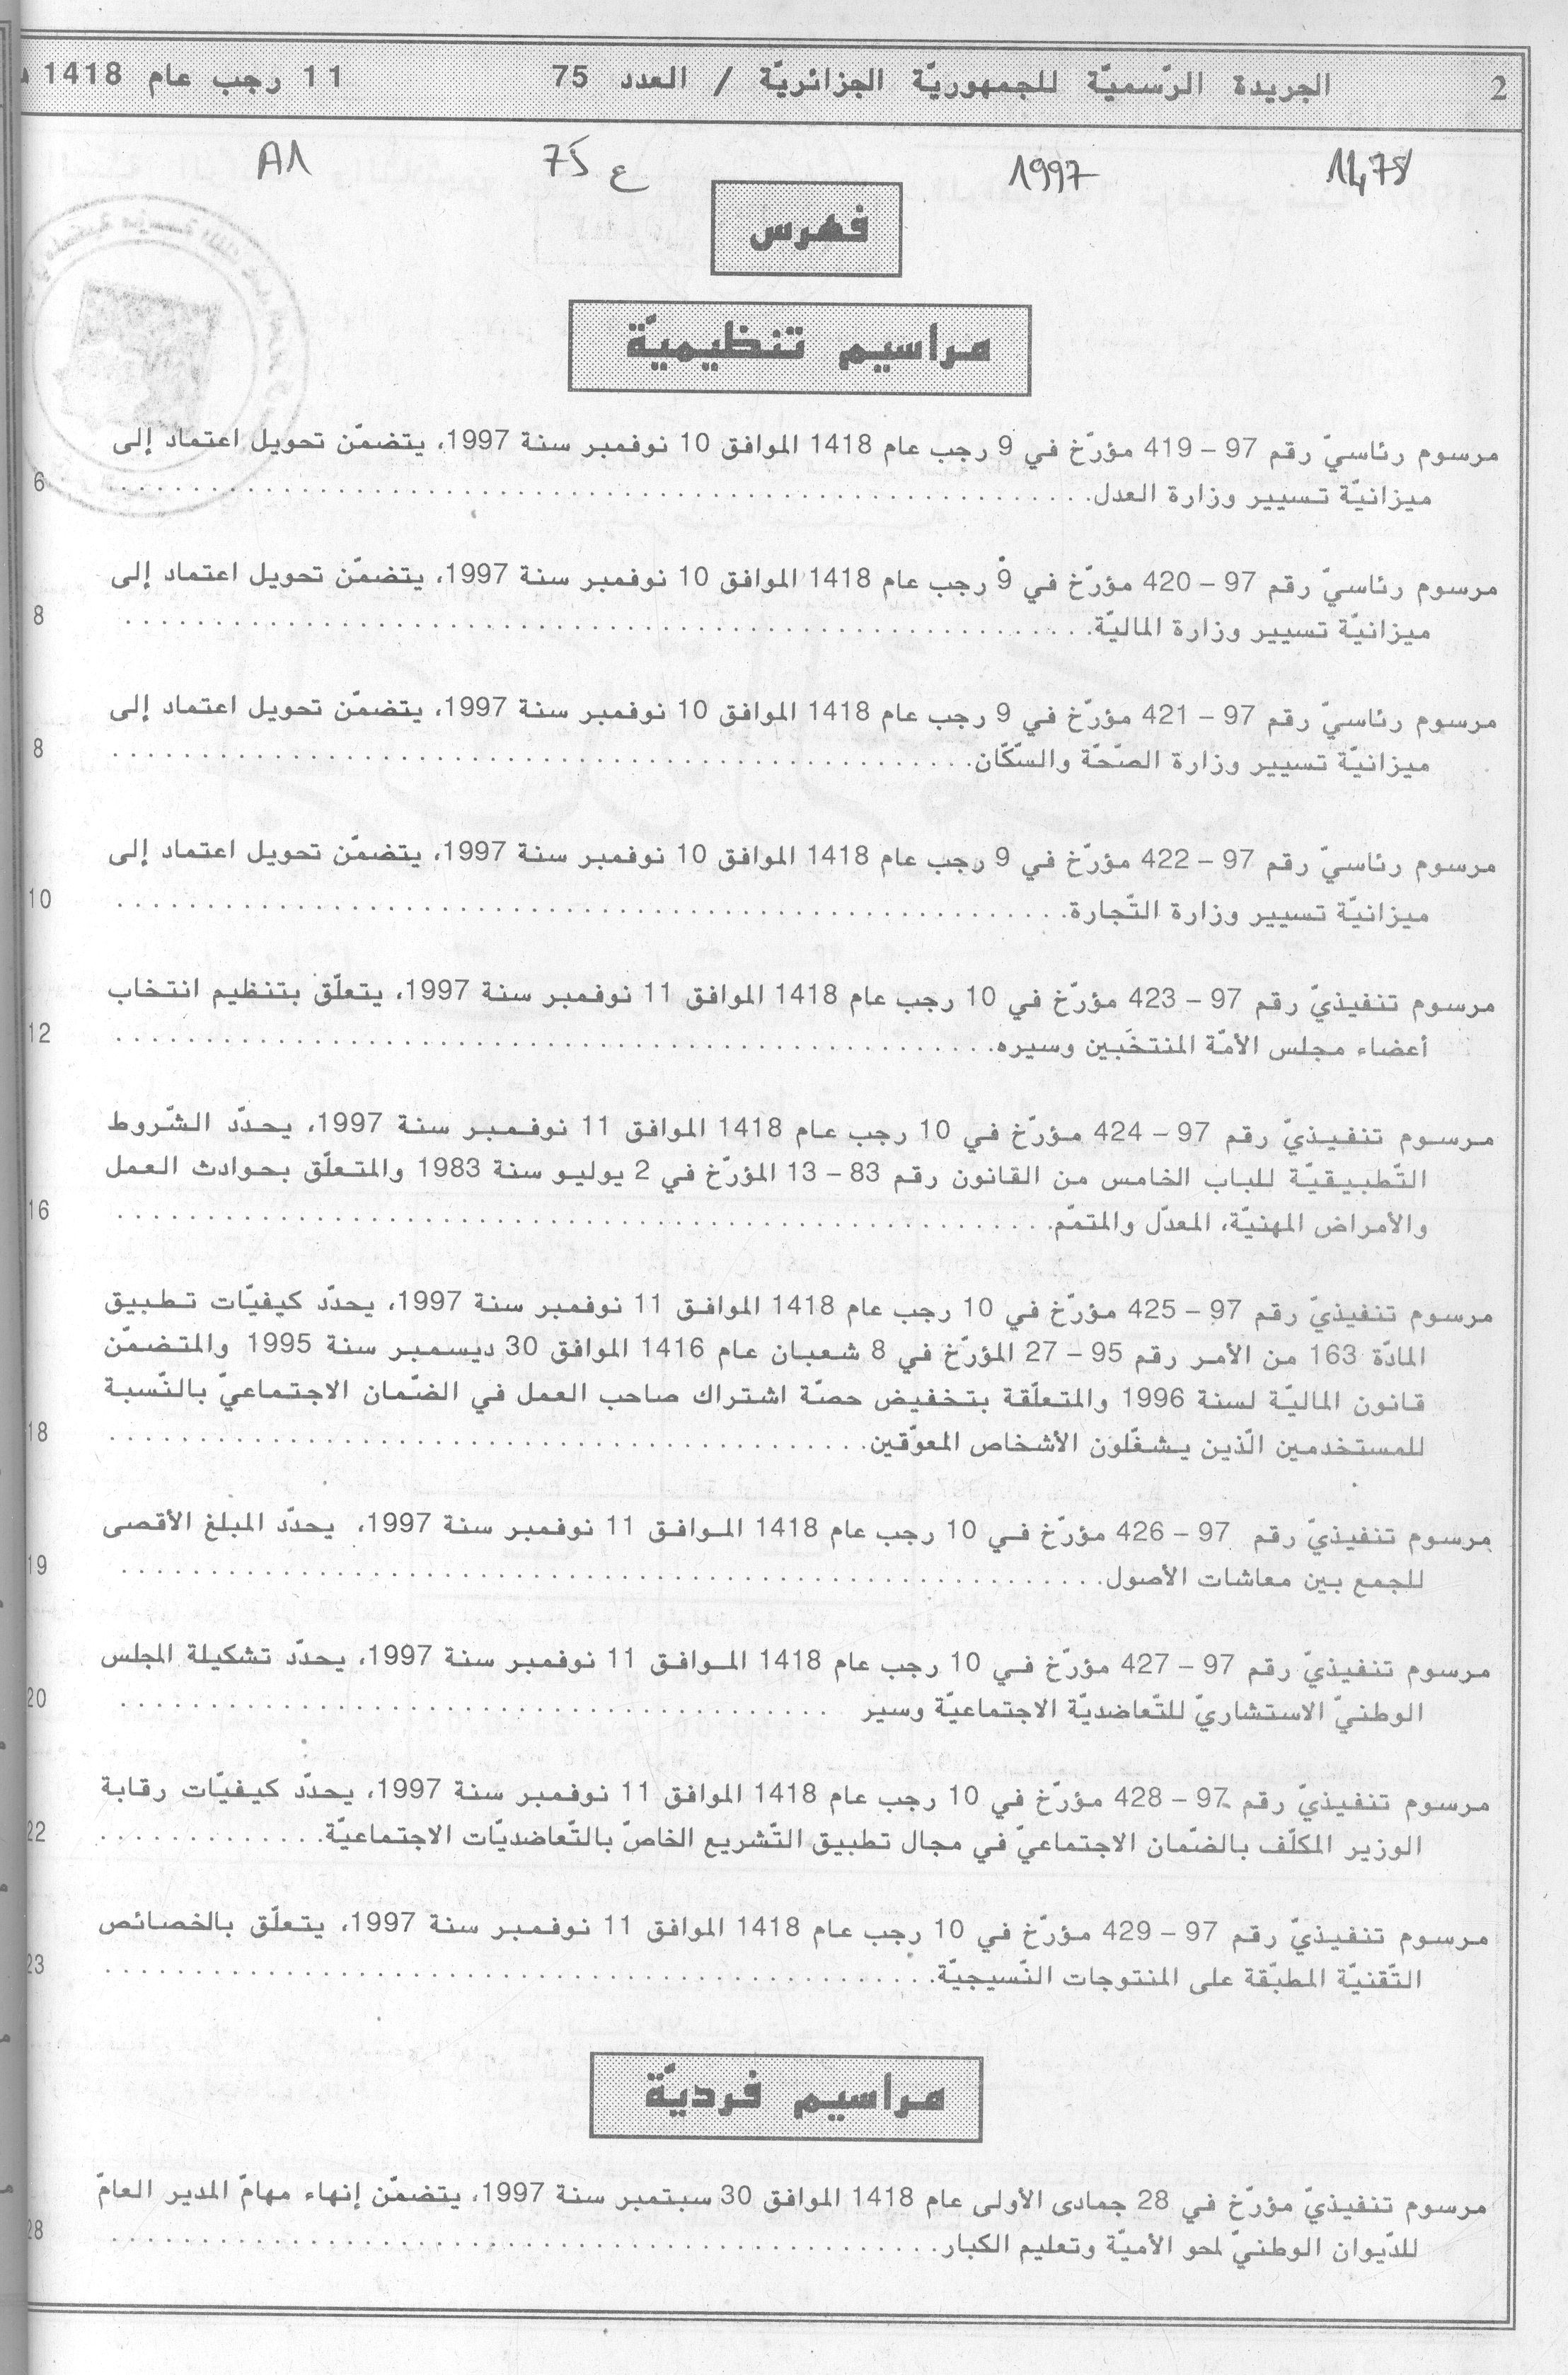 2 الجريدة الرّسميّة للجمهوريّة الجزائريّة / العدد 75 11 رجب عام 1418
1997 ع 75 A1
فهرس
مراسيم تنظيميّة
مرسوم رئاسيّ رقم 97 – 419 مؤرّخ في 9 رجب عام 1418 الموافق 10 نوفمبر سنة 1997، يتضمّن تحويل اعتماد إلى
ميزانيّة تسيير وزارة العدل. . . . . . . . . . 6
مرسوم رئاسيّ رقم 97 – 420 مؤرّخ في 9 رجب عام 1418 الموافق 10 نوفمبر سنة 1997، يتضمّن تحويل اعتماد إلى
ميزانيّة تسيير وزارة الماليّة. . . . . . . . . . 8
مرسوم رئاسيّ رقم 97 – 421 مؤرّخ في 9 رجب عام 1418 الموافق 10 نوفمبر سنة 1997، يتضمّن تحويل اعتماد إلى
ميزانيّة تسيير وزارة الصّحّة والسّكّان. . . . . . . . . . 8
مرسوم رئاسيّ رقم 97 – 422 مؤرّخ في 9 رجب عام 1418 الموافق 10 نوفمبر سنة 1997، يتضمّن تحويل اعتماد إلى
ميزانيّة تسيير وزارة التّجارة. . . . . . . . . . 10
مرسوم تنفيذيّ رقم 97 – 423 مؤرّخ في 10 رجب عام 1418 الموافق 11 نوفمبر سنة 1997، يتعلّق بتنظيم انتخاب
أعضاء مجلس الأمّة المنتخَبين وسيره. . . . . . . . . . 12
مرسوم تنفيذيّ رقم 97 – 424 مؤرّخ في 10 رجب عام 1418 الموافق 11 نوفمبر سنة 1997، يحدّد الشّروط
التّطبيقيّة للباب الخامس من القانون رقم 83 – 13 المؤرّخ في 2 يوليو سنة 1983 والمتعلّق بحوادث العمل
والأمراض المهنيّة، المعدّل والمتمّم. . . . . . . . . . 16
مرسوم تنفيذيّ رقم 97 – 425 مؤرّخ في 10 رجب عام 1418 الموافق 11 نوفمبر سنة 1997، يحدّد كيفيّات تطبيق
المادّة 163 من الأمر رقم 95 – 27 المؤرّخ في 8 شعبان عام 1416 الموافق 30 ديسمبر سنة 1995 والمتضمّن
قانون الماليّة لسنة 1996 والمتعلّقة بتخفيض حصّة اشتراك صاحب العمل في الضّمان الاجتماعيّ بالنّسبة
للمستخدمين الّذين يشغّلون الأشخاص المعوّقين. . . . . . . . . . 18
مرسوم تنفيذيّ رقم 97 – 426 مؤرّخ في 10 رجب عام 1418 الموافق 11 نوفمبر سنة 1997، يحدّد المبلغ الأقصى
للجمع بين معاشات الأصول. . . . . . . . . . 19
مرسوم تنفيذيّ رقم 97 – 427 مؤرّخ في 10 رجب عام 1418 الموافق 11 نوفمبر سنة 1997، يحدّد تشكيلة المجلس
الوطنيّ الاستشاريّ للتّعاضديّة الاجتماعيّة وسير . . . . . . . . . . 20
مرسوم تنفيذيّ رقم 97 – 428 مؤرّخ في 10 رجب عام 1418 الموافق 11 نوفمبر سنة 1997، يحدّد كيفيّات رقابة
الوزير المكلّف بالضّمان الاجتماعيّ في مجال تطبيق التّشريع الخاصّ بالتّعاضديّات الاجتماعيّة. . . . . . . . . . 22
مرسوم تنفيذيّ رقم 97 – 429 مؤرّخ في 10 رجب عام 1418 الموافق 11 نوفمبر سنة 1997، يتعلّق بالخصائص
التّقنيّة المطبّقة على المنتوجات النّسيجيّة. . . . . . . . . . 23
مراسيم فرديّة
مرسوم تنفيذيّ مؤرّخ في 28 جمادى الأولى عام 1418 الموافق 30 سبتمبر سنة 1997، يتضمّن إنهاء مهامّ المدير العامّ
للدّيوان الوطنيّ لمحو الأميّة وتعليم الكبار. . . . . . . . . . 28